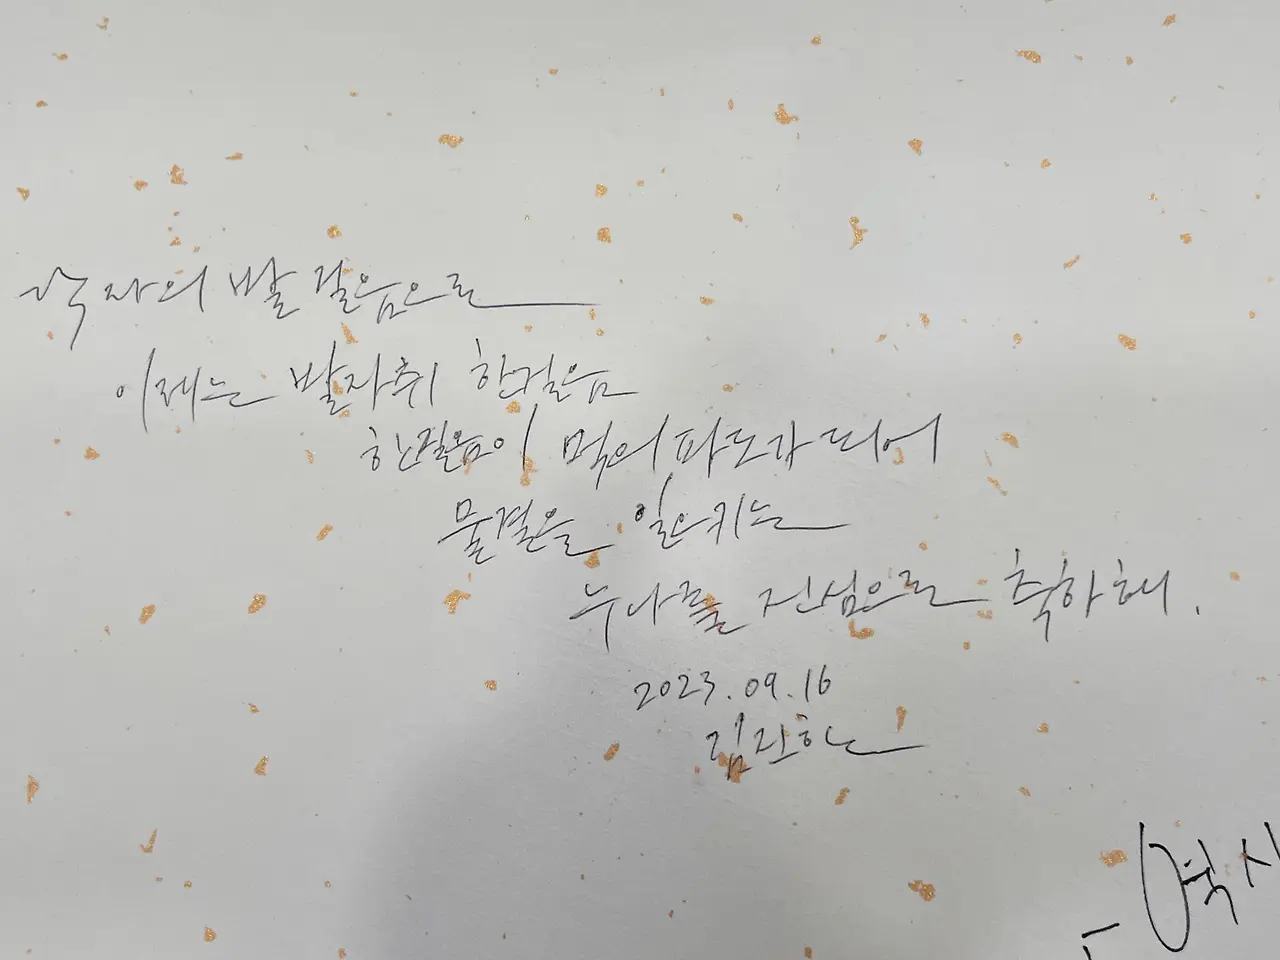 낙타의 발 걸음으로
이제는 발자취 한걸음
한걸음이 먹의 파도가 되어
물결을 일으키는
누나를 진심으로 축하해.
2023.09.16
김진한
역시